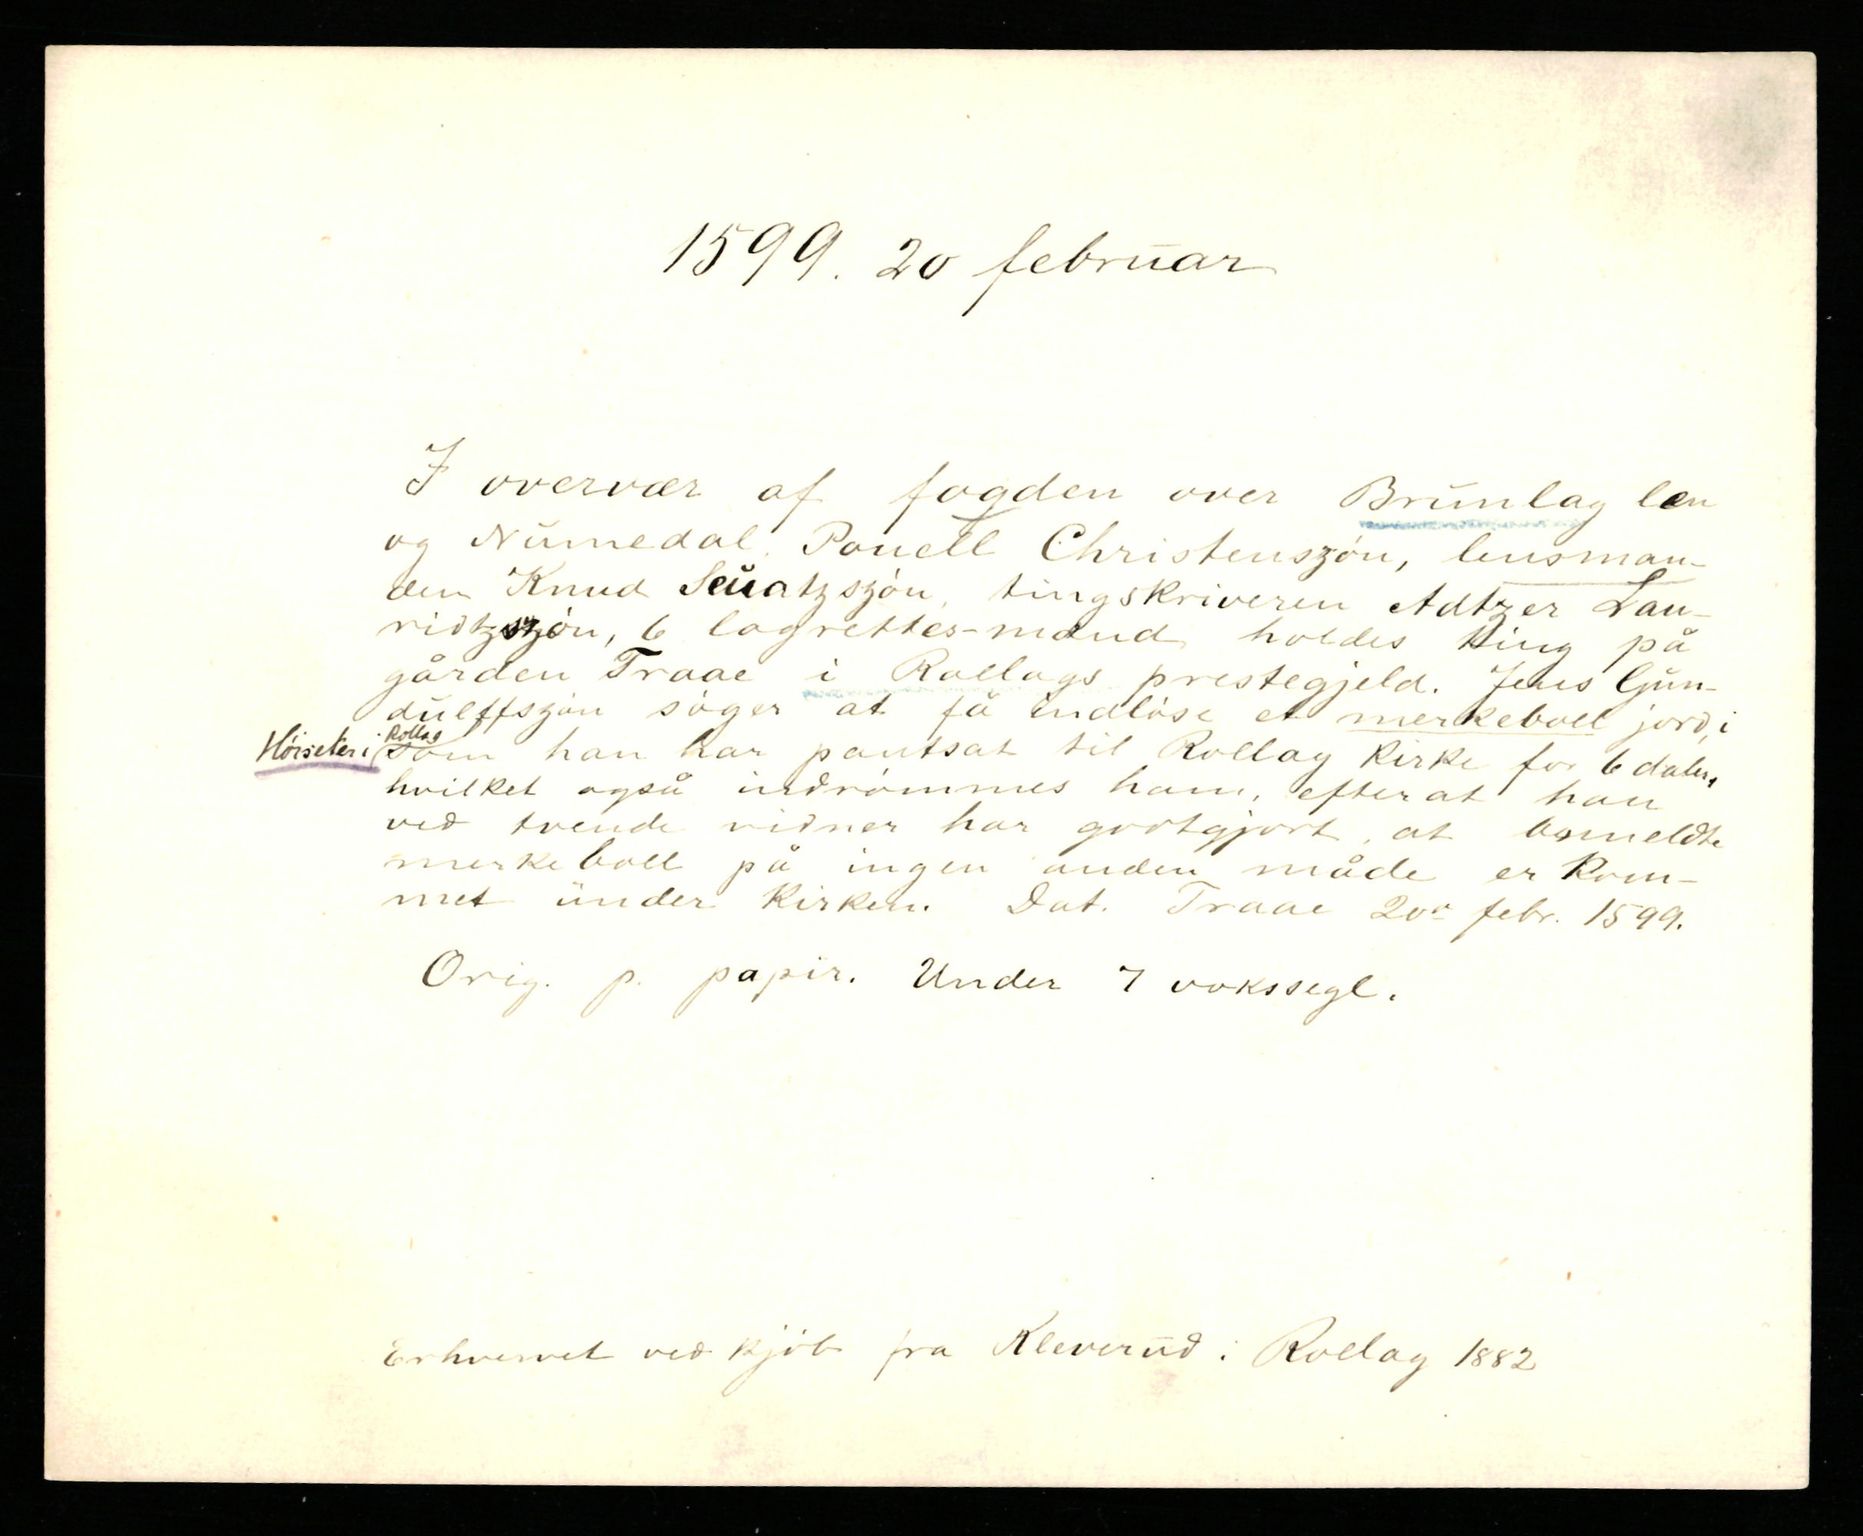 1599. 20 februar
I overvær af fogden over Brunlag len
og Numedal. Pouell Christenszøn, lensman-
den Knud Seuatzszøn, tingskriveren Adtzer Lau-
ridtzszøn, 6 lagrettes-mænd holdes ting på
gården Traae i Rollags prestegjeld. Jens Gun-
dulffszøn søger at få indløse et merkeboll jord, i
Høiseter i Rollag som han har pantsat til Rollag kirke for 6 daler,
hvilket også indrømmes ham, efterat han
ved tvende vidner har godtgjort, at bemeldte
merkeboll på ingen anden måde er kom-
met under kirken. Dat. Traae 20de febr. 1599.
Orig. p. papir. Under 7 vokssegl.
Erhvervet ved kjøb fra Kleverud i Rollag 1882